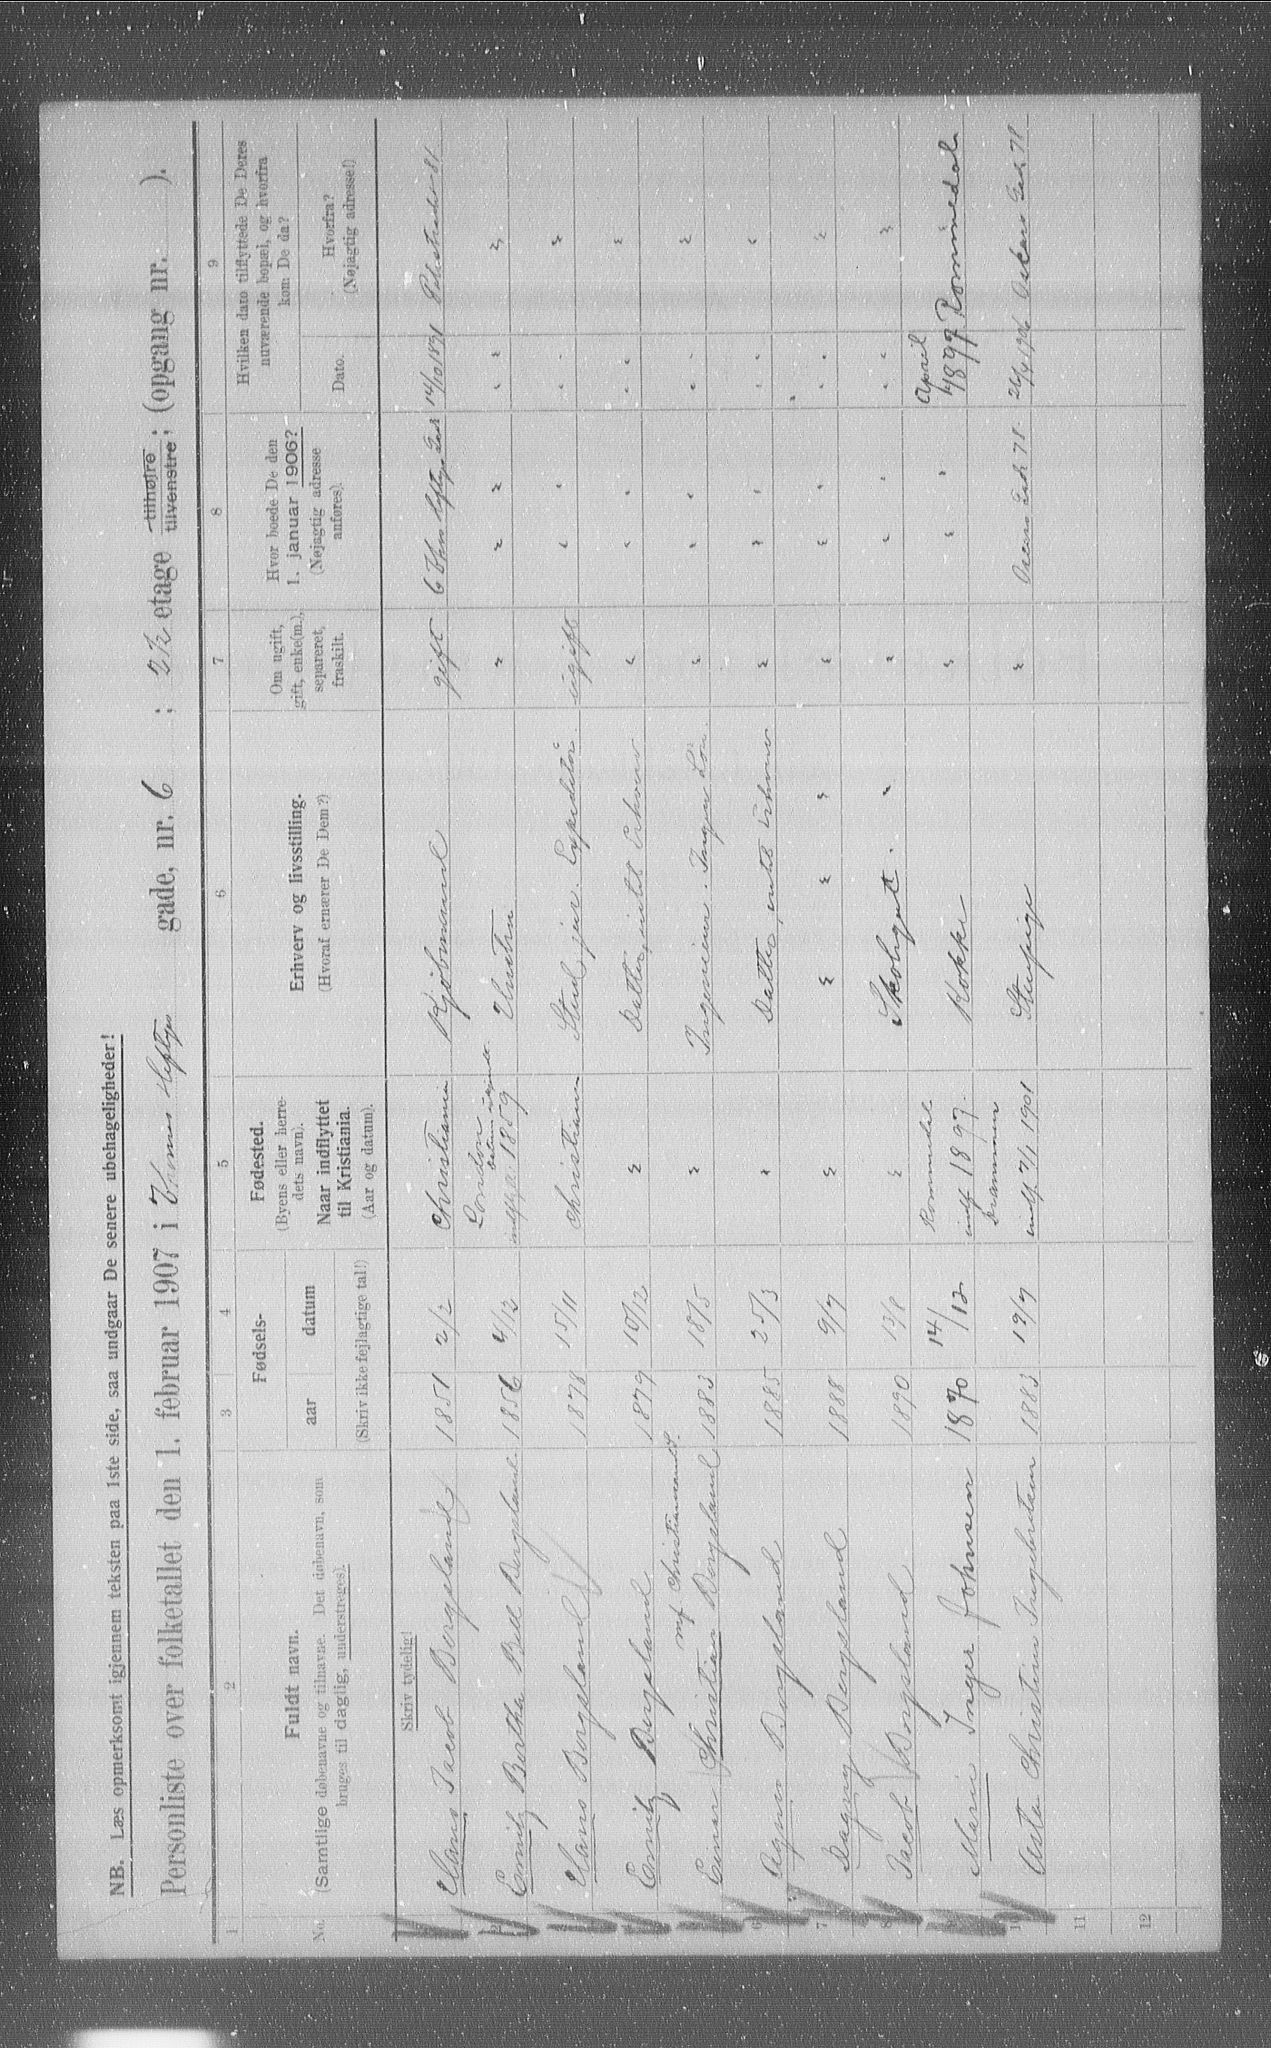 NB. Læs opmerksomt igjennem teksten paa 1ste side, saa undgaar De senere ubehageligheder!
Personliste over folketallet den 1. februar 1907 i Thomas Heftyes gade, nr. 6 ; 2 1/2 etage tilhøjre tilvenstre; (opgang nr. ).
1 2 3 4 5 6 7 8 9
No. Fuldt navn. (Samtlige døbenavne og tilnavne. Det døbenavn, som bruges til daglig, understreges).
Fødsels- aar datum (Skriv ikke fejlagtige tal!)
Fødested. (Byens eller herredets navn). Naar indflyttet til Kristiania. (Aar og datum).
Erhverv og livsstilling. (Hvoraf ernærer De Dem?)
Om ugift, gift, enke(m.), separeret, fraskilt.
Hvor boede De den 1. januar 1906? (Nøjagtig adresse anføres).
Hvilken dato tilflyttede De Deres nuværende bopæl, og hvorfra kom De da?
Dato. Hvorfra? (Nøjagtig adresse!)
Skriv tydelig!
Hans Jacob Bergeland 1851 2/2 Christiania Kjøbmand gift 6 Thm Heftyes Gade 14/10 1891
2 Emily Bertha Bell Bergeland 1856 4/12 London 1859 Hustru " " " " " "
Hans Bergeland 1878 15/11 Christiania Stud. jur. Expeditør ugift " " " " "
Emily Bergeland 1879 10/12 " Datter, intet Erhverv " " " " " "
mf Christiansand
Einar Christian Bergeland 1883 18/5 " Ingeniør. Ingen Løn " " " " " "
6 Agnes Bergeland 1885 25/3 " Datter, intet Erhverv " " " " " "
7 Dagny Bergeland 1888 9/7 " " " " " " " " " "
8 Jacob Bergeland 1890 13/8 " Skolegut. " " " " " " "
Marie Inger Johnsen 1870 14/12 Rommedal indf 1897. Kokke " " " April 1897 Rommedal
10 Asta Christine Ingebretsen 1883 19/7 Drammen indf. 7/1 1901 Stuepige " Oscars Gade 78. 24/4 1906 Oskars Gade 78
11
12